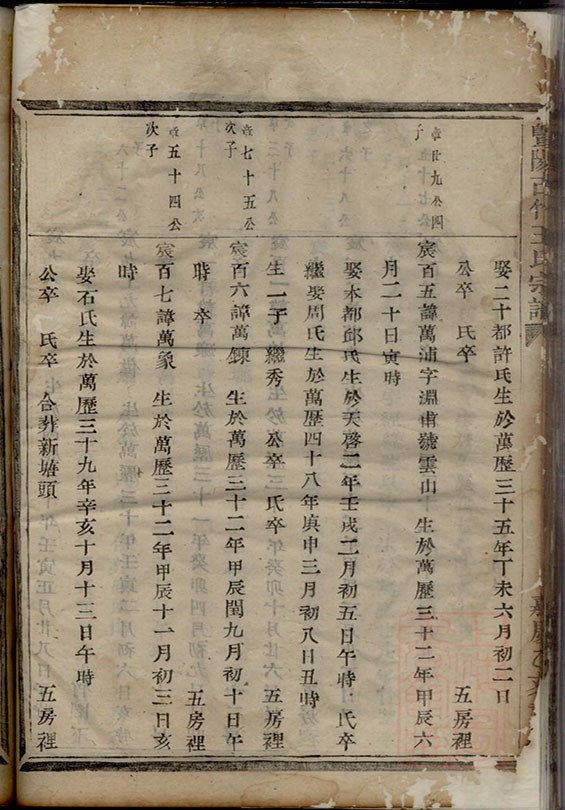 暨陽古竹王氏宗譜
嘉慶乙亥
娶二十都許氏生於萬歷三十五年丁未六月初二日
公卒　氏卒　五房裡
宸廿九公四
子
宸百五諱萬浦字淵甫號雲山　生於萬歷三十二年甲辰六
月二十日寅時
娶本都邱氏生於天啓二年壬戌二月初五日午時　氏卒
繼娶周氏生於萬歷四十八年庚申三月初八日丑時
生一子　繼秀　公卒　氏卒　五房裡
宸七十五公
次子
宸百六諱萬鍊　生於萬歷三十二年甲辰閏九月初十日午
時　卒　五房裡
宸五十四公
次子
宸百七諱萬象　生於萬歷三十二年甲辰十一月初三日亥
時
娶石氏生於萬歷三十九年辛亥十月十三日午時
公卒　氏卒　合葬新塘頭　五房裡